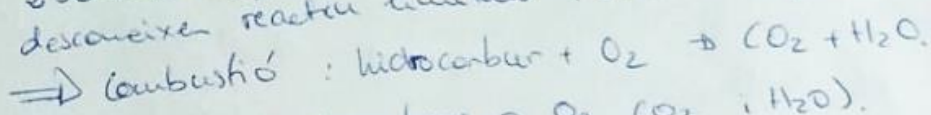 desconeixen reactiu
⇒ Combustió : hidrocarbur + O₂ → CO₂ + H₂O.
O₂ CO₂ i H₂O).